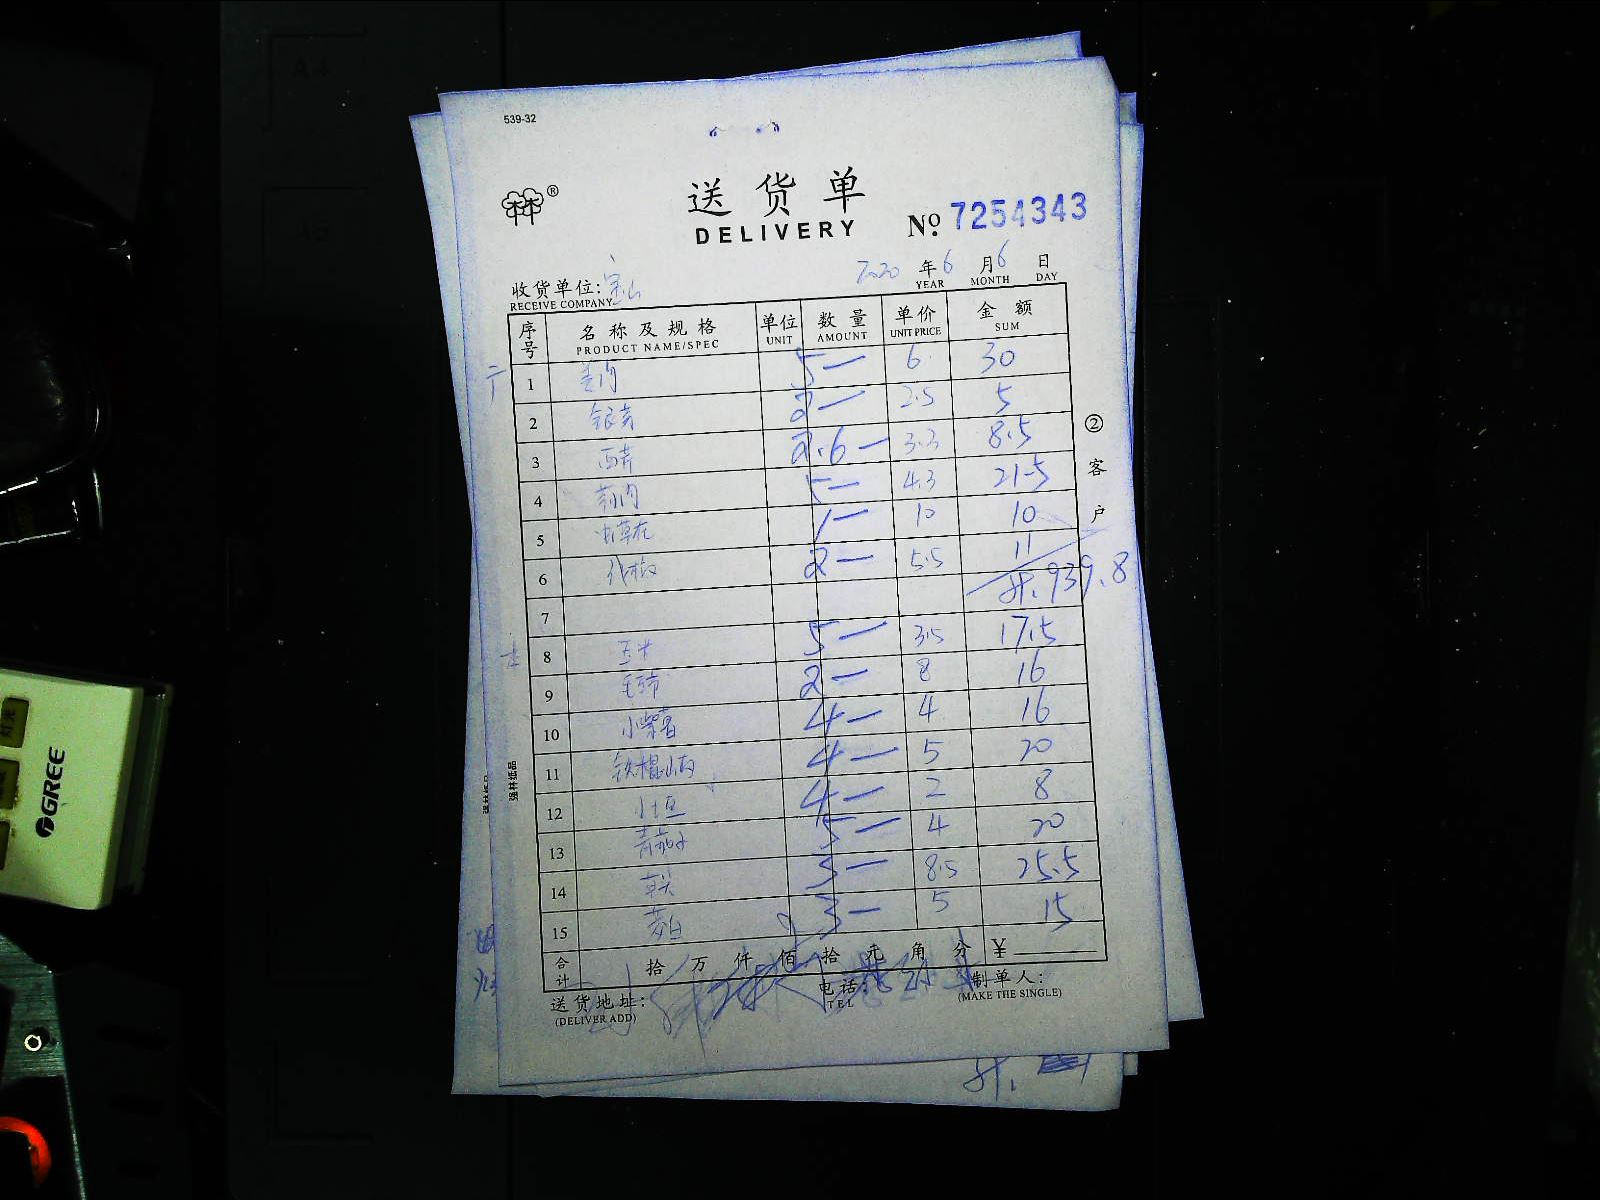 539-32
®
送货单
DELIVERY
№ 7254343
2020 年 6 月 6 日
YEAR MONTH DAY
收货单位: 宝山
RECEIVE COMPANY
序号 名称及规格 单位 数量 单价 金额
PRODUCT NAME/SPEC UNIT AMOUNT UNIT PRICE SUM
1 姜肉 5— 6 30
2 银芽 2— 2.5 5
3 西芹 2.6— 3.3 8.5
4 5— 4.3 21.5
5 虫草花 1— 10 10
6 2— 5.5 11
7 939.8
8 玉米 5— 3.5 17.5
9 毛芋 2— 8 16
10 小紫薯 4— 4 16
11 铁棍山药 4— 5 20
12 4— 2 8
13 5— 4 20
14 3— 8.5 25.5
15 茭白 3— 5 15
合计 拾 万 仟 佰 拾 元 角 分 ¥
送货地址: 电话: 制单人:
(DELIVER ADD) TEL (MAKE THE SINGLE)
②客户
强林纸品
GREE